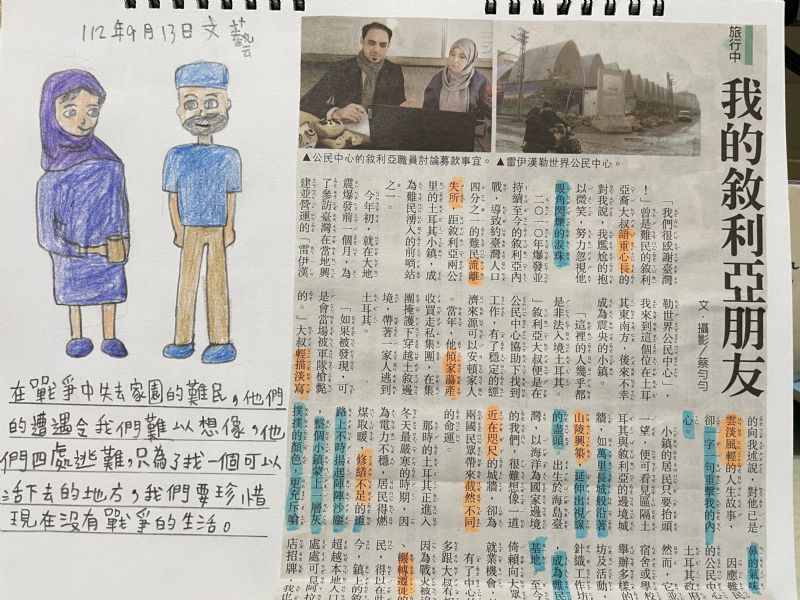 112年9月13日文藝
在戰爭中失去家園的難民，他們
的遭遇令我們難以想像，他
們四處逃難，只為了找一個可以
活下去的地方，我們要珍惜
現在沒有戰爭的生活。
▲公民中心的敘利亞職員討論募款事宜。
▲雷伊漢勒世界公民中心。
旅行中
我的敘利亞朋友
文．攝影／蔡勻勻
「我們很感謝臺灣
！」曾是難民的敘利
亞裔大叔語重心長的
對我說，我尷尬的抱
以微笑，努力忽視他
眼角閃爍的淚珠。
二〇一〇年爆發並
持續至今的敘利亞內
戰，導致約臺灣人口
四分之一的難民流離
失所，距敘利亞兩公
里的土耳其小鎮，成
為難民湧入的前哨站
之一。
今年初，就在大地
震爆發前一個月，為
了參訪臺灣在當地興
建並營運的「雷伊漢
勒世界公民中心」，
我來到這個位在土耳
其東南方、後來不幸
成為震央的小鎮。
「這裡的人幾乎都
是非法入境土耳其。
」敘利亞大叔便是在
公民中心協助下找到
工作，有了穩定的經
濟來源可以安頓家人
。當年，他傾家蕩產
收買走私集團，在集
團掩護下穿越土敘邊
境，帶著一家人逃到
土耳其。
「如果被發現，可
是會當場被軍隊槍斃
的。」大叔輕描淡寫
的向我述說，對他已是
雲淡風輕的人生故事，
卻一字一句重擊我的內
心。
小鎮的居民只要抬頭
一望，便可看見區隔土
耳其與敘利亞的邊境城
牆，如萬里長城般沿著
山陵興築，延伸出視線
的盡頭。出生在海島臺
灣，以海洋為國家邊境
的我們，很難想像一道
近在咫尺的城牆，卻為
兩國民眾帶來截然不同
的命運。
那時的土耳其正進入
冬天最嚴寒的時期，因
為電力不穩，居民得燃
煤取暖，修繕不足的道
路上不時揚起陣陣沙塵
，整個小鎮蒙上一層灰
撲撲的顏色，更充斥嗆
鼻的氣味
因應難
的公民中
土耳其政
然而，它並
宿舍或學
舉辦多樣的
坊及活動
針織工作坊
，成為難民
基地，至今
倚賴向大眾
就業機會
有了中心
多跟大叔有
因為戰火被
輾轉遷徙的
民，得以在此
今，鎮上的敘
超越本地人口
處處可見阿拉
店招牌，我也